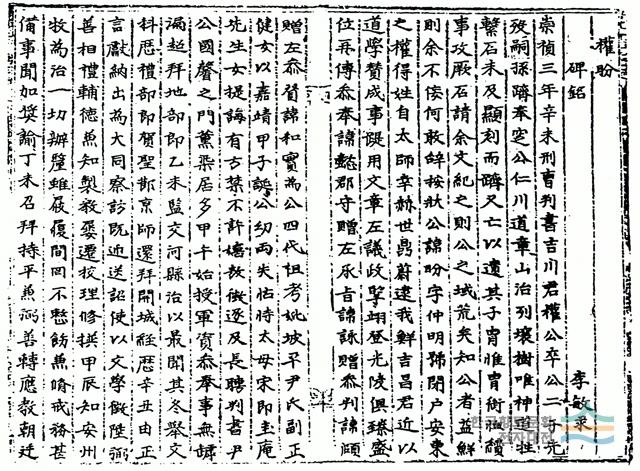 權盼
碑銘 李敏求
崇禎三年辛未刑曹判書吉川君權公卒公二子先
歿嗣孫躋奉窆公仁川道章山治列壤樹唯神道牲
繫石未及顯刻而躋又亡以遺其子冑惟冑銜恤礲
事攻厥石請余文紀之則公之域荒矣知公者益鮮
則余不佞何敢辭按狀公諱盼字仲明號閉戶安東
之權得姓自太師幸赫世鼎蔚逮我鮮吉昌君近以
道學贊成事踶用文章左議政擥翊登光陵俱臻盛
位再傳參奉諱懿郡守贈左承旨諱詠贈參判諱頎
贈左參贊諱和實為公四代祖考妣坡平尹氏副正
健女以嘉靖甲子誕公幼而失怙恃太母宋即圭庵
先生女提誨有古禁不許嬉敖徵逐及長聘判書尹
公國馨之門薰染居多甲午始授軍資參奉事無罅
漏超拜地部郎乙未監交河縣治以最聞其冬舉文
科歷禮部郎賀聖節京師還拜開城經歷辛丑由正
言獻納出為大同察訪既近送詔使以文學儆陞弼
善相禮輔德兼知製敎屢遷校理修撰甲辰知安州
牧為治一切辦釐雖間罔不慭飭兼脩戒務甚
備事聞加奬諭丁未召拜持平兼弼善轉應敎朝廷